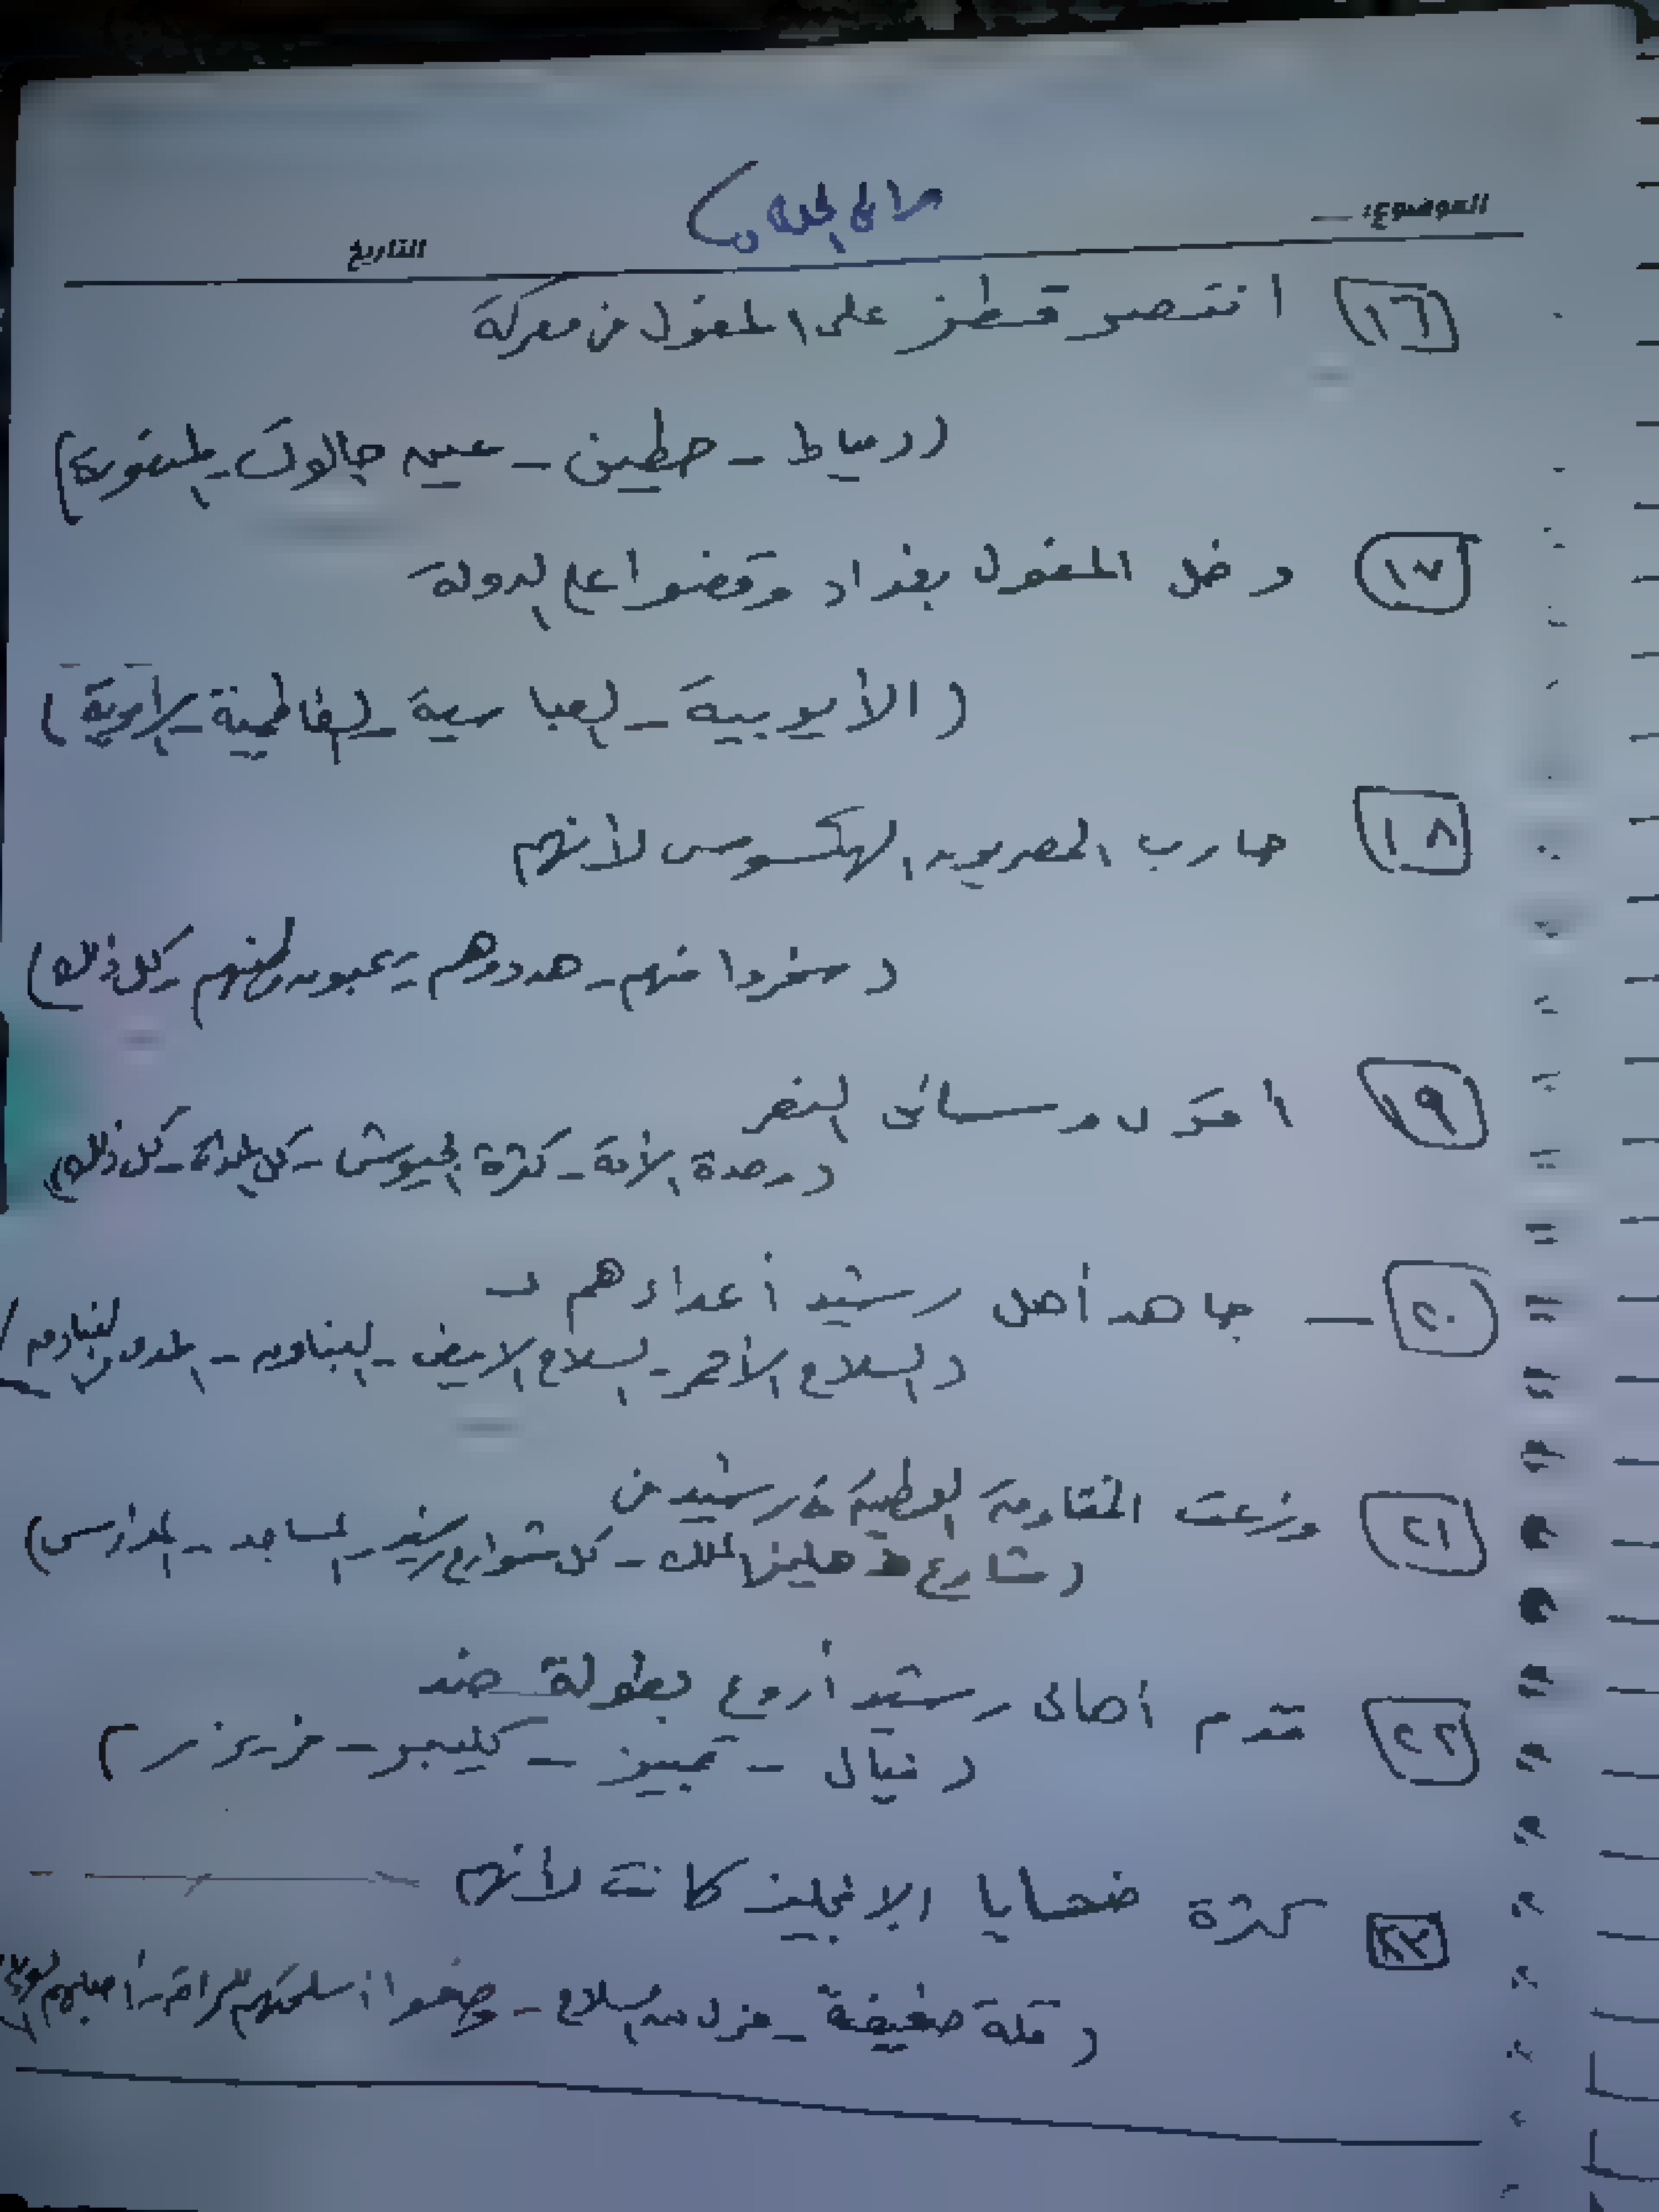 الموضوع:
التاريخ
١٦ انتصر قطز على المغول في معركة
(دمياط - حطين - عين جالوت - المنصورة)
١٧ دخل المغول بغداد وقضوا على الدولة
(الأيوبية - العباسية - الفاطمية - الأموية)
١٨ حارب المصريون الهكسوس لأنهم
(سخروا منهم - هددوهم - يحبون وطنهم - كل ذلك)
١٩ أقوى وسائل النصر
(وحدة الأمة - كثرة الجيوش - كل ذلك)
٢٠ - جاهد أهل رشيد أعداءهم بـ
(السلاح الأحمر - السلاح الأبيض - البنادق - المدافع والبنادق)
٢١ وزعت المقاومة الوطنية في رشيد في
(شارع دهليز الملك - كل شوارع رشيد - المساجد - المدارس)
٢٢ قدم أهالى رشيد أروع بطولة ضد
(نيال - قمبيز - كليبر - فريزر)
٢٣ كثرة ضحايا الإنجليز كانت لأنهم
(قلة ضعيفة - عزل من السلاح - وضعوا أسلحتهم للراحة - أصابهم